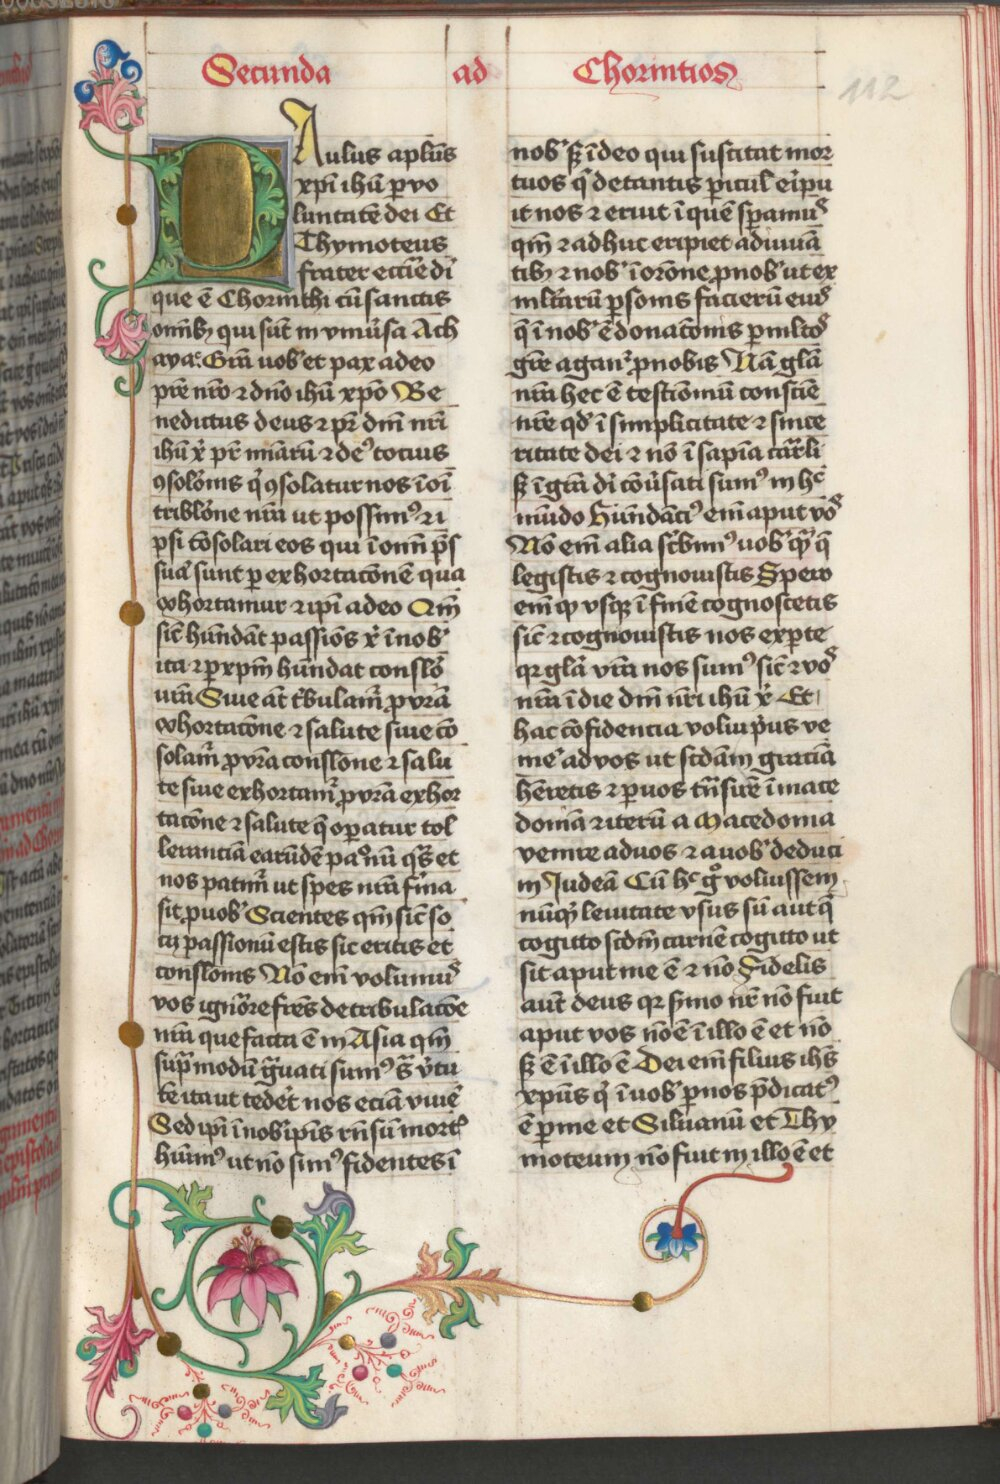 Secunda ad Chorintios
112
PAulus aplūs
xp̄i ihū p vo
luntatē dei Et
Thymoteus
frater eccīe dī
que ē Chorinthi cū sanctis
omībꝫ qui sūt in vniūsa Ach
aya. Grā uob᾽ et pax a deo
pr̄e nr̄o ⁊ dn̄o ihū xp̄o Be
nedictus deus ⁊ pr̄ dn̄i nr̄i
ihū xp̄ pr̄ mīarū ⁊ de᾽ tocius
ꝯsolōnis q̄ ꝯsolatur nos ī oī
tribl̄one nr̄a ut possim᾽ ⁊ i
psi cōsolari eos qui ī omī p̄s
sura sunt p exhortacōnē qua
exhortamur ⁊ ip̄i a deo Qm̄
sic̄ hūndāt passiōs xp̄ ī nob᾽
ita ⁊ p xp̄m hūndat conslō
nr̄a Siue aūt t̄bulam̄ ꝓ vr̄a
exhortacōne ⁊ salute siue cō
solam̄ ꝓ vr̄a conslōne ⁊ salu
te siue exhortam̄ ꝓ vr̄a exhor
tacōne ⁊ salute q̄ opatur tol
lerantiā earūdē pa᾽nū q̄s et
nos patim̄ ut spes nr̄a firma
sit ꝓ uob᾽ Scientes qm̄ sic̄ so
cij passionū estis sic eritis et
conslōnis Nō em̄ volumus
vos ignōre fr̄es de tribulacōe
nr̄a que facta ē in Asia qm̄
sup̄ modū g̃uati sum᾽ s̄ v̄tu
tē ita ut tedēt nos eciā viuē
Sed ip̄i ī nob᾽ ip̄is rn̄sū mort᾽
hūim᾽ ut nō sim᾽ fidentes ī
nob᾽ sꝫ ī deo qui suscitat mor
tuos q̄ de tantis picul᾽ eīpu
it nos ⁊ eruit ī quē spamus
qm̄ ⁊ adhuc eripiet adiuuā
tibꝫ ⁊ nob᾽ ī orōne ꝓ nob᾽ ut ex
mltārū psonis facierū eius
q̄ ī nob᾽ ē donacōnis p mltos
grē agant᾽ ꝓ nobis Nā glā
nr̄a hec ē testīomū consciē
nr̄e qd᾽ ī simplicitate ⁊ since
ritate dei ⁊ nō ī sapīa carli
sꝫ ī grā dī cōūsati sum᾽ in hͨ
mūdo Hūndāci᾽ em̄ aput vos
Nō em̄ alia sc̄bim᾽ uob᾽ qꝫ q̄
legistis ⁊ cognouistis Spero
em̄ qꝫ vsqꝫ ī finē cognoscetis
sic̄ ⁊ cognouistis nos ex pte
qr glā vr̄a nos sum᾽ sic̄ ⁊ vos
nr̄a ī die dn̄i nr̄i ihū xp̄ Et
hac cōfidencia volui p̄us ve
nīe ad vos ut scdām graciā
hēretis ⁊ p uos tn̄sire ī mace
doniā ⁊ iterū a Macedonia
venire ad uos ⁊ a uob᾽ deduci
in Judeā Cū hͨ g̊ voluissem
nūqꝫ leuitate vsus sū aut q̄
cogitto scdm̄ carnē cogitto ut
sit aput me ē ⁊ nō Fidelis
aūt deus qr s̄mo nr̄ nō fuit
aput vos nō ē ī illo ē et nō
sꝫ ē ī illo ē Dei em̄ filius ihs̄
xp̄us q̄ ī uob᾽ p nos p̄dicat᾽
ē p me et Siluanū et Thy
moteum nō fuit in illo ē et